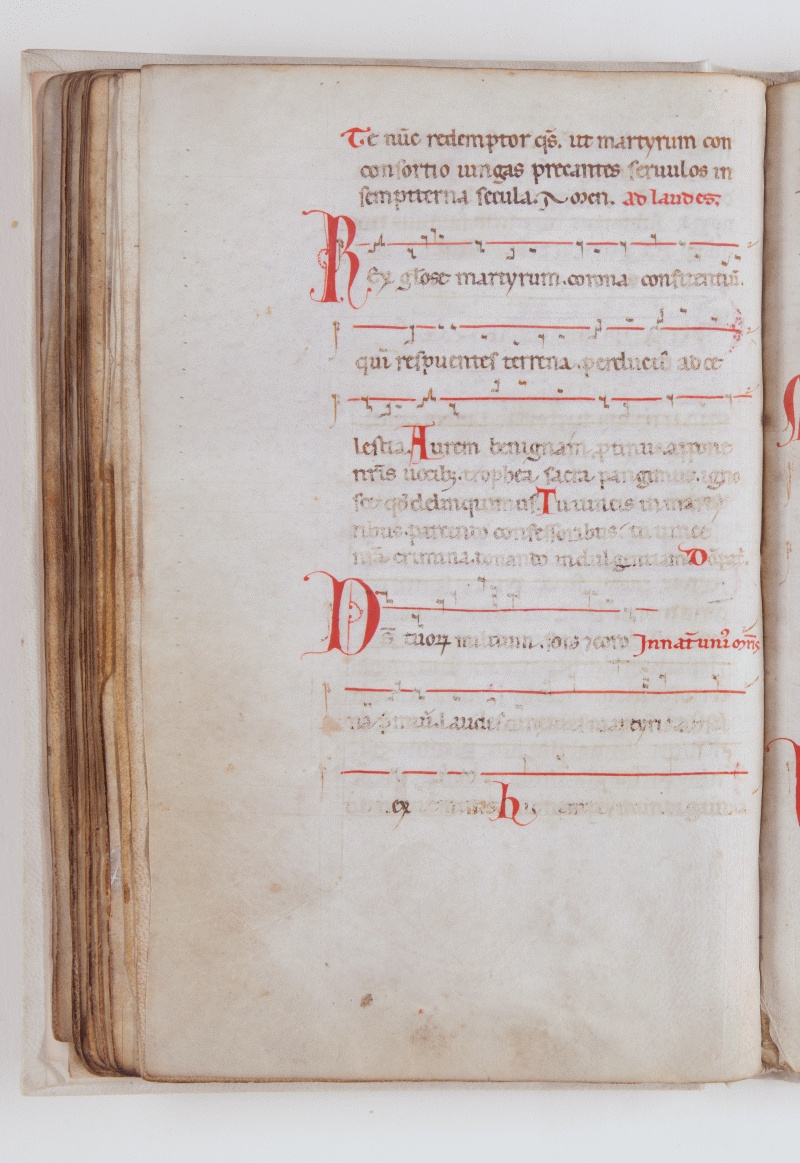 Te nūc redemptor qs̄. ut martyrum con
consortio iungas precantes seruulos in
sempiterna secula. Amen. ad laudes.
Rex gl̄ose martyrum. corona confitentiū.
qui respuentes terrena. perducis ad ce
lestia. Aurem benignam p̱tinus appone
nr̄is uocibꝫ. trophea sacra pangimus. igno
sce qd̄ delinquimus. Tu uincis in marty
ribus. parcendo confessoribus. tu uince
nr̄a crimina. donando indulgentiam. D
Ds̄ tuoꝝ militum. sors ⁊ coro In nat̄ uniꝰ
na p̄miū. Laudes martyris
ex h